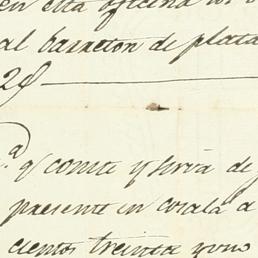 en esta oficina los
al barreton de plata
28
.ª q̃ conste y sirva de
presente en cosala a
cientos treinta y uno